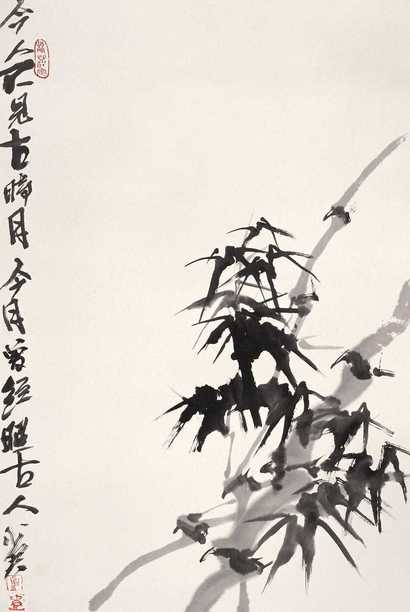 今人不見古時月今月曾經照古人